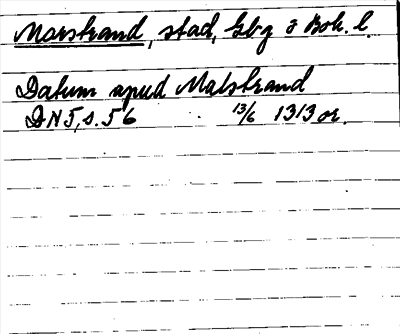 Marstrand, stad, Gbg o Boh. l.
Datum apud Malstrand
DN 5, s. 56 13/6 1313 or.